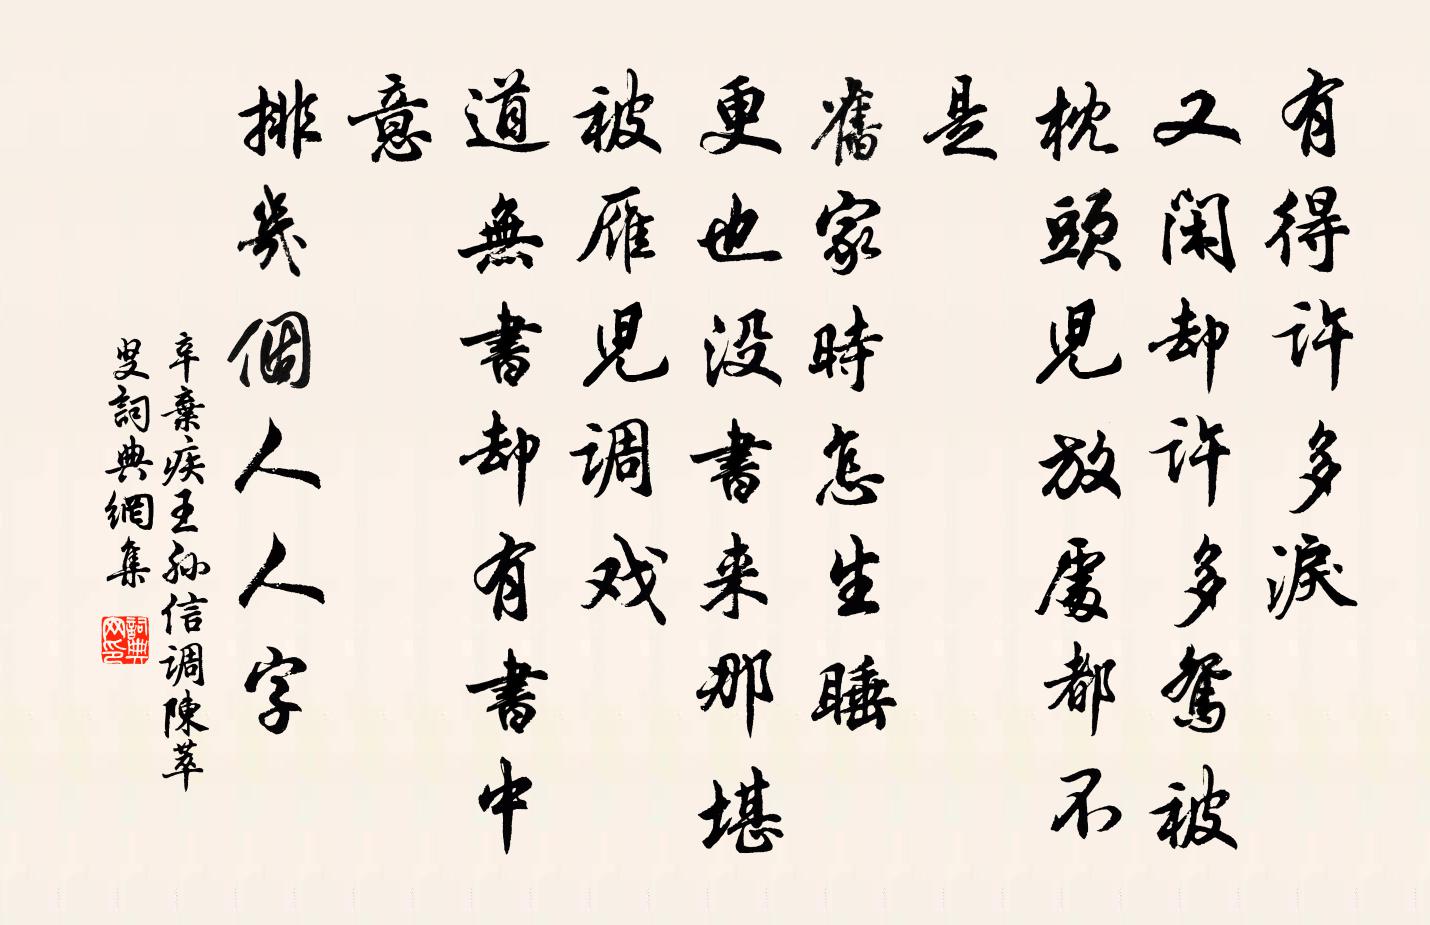 有得許多淚
又闲却許多鴛被
枕頭兒放處都不
是
舊家時怎生睡
更也没書来那堪
被雁兒調戏
道無書却有書中
意
排幾個人人字
辛棄疾王孙信調陳萃
叟詞典網集
詞典网印